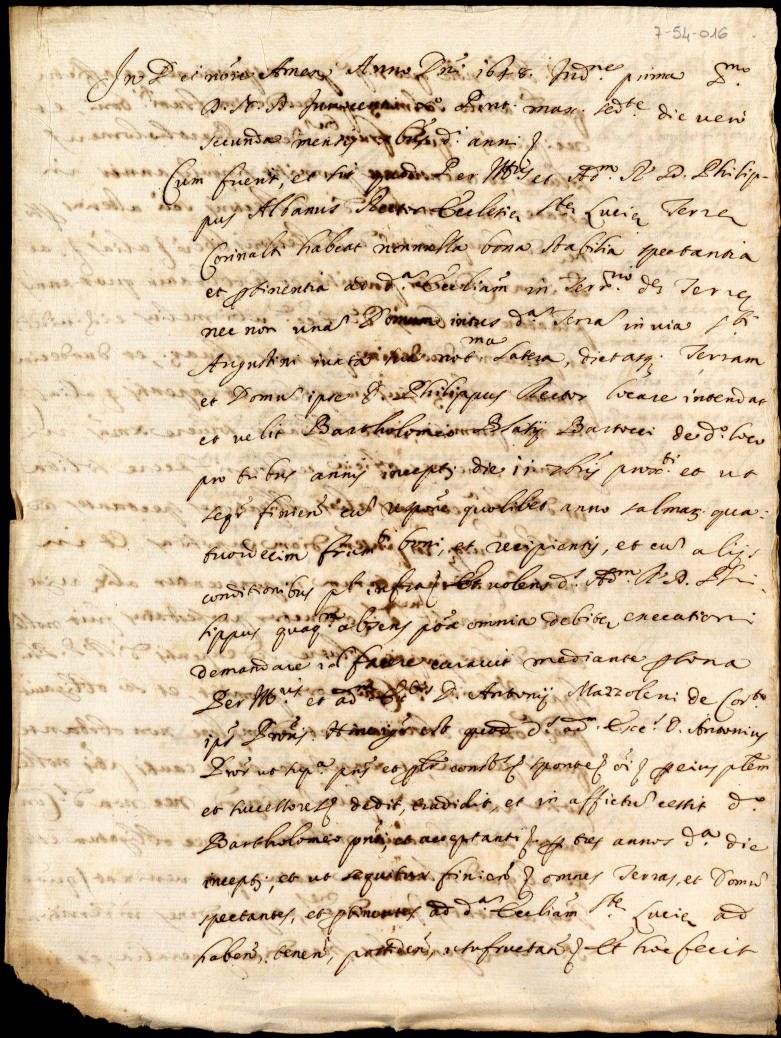 7-54-016
In Dei nõre Amen Anno Dñi 1648. Ind.ne prima S.mo
D. N. D. Innocentio Pont. max. sed.te die vero
secunda mensis d.i anni
Cum fuerit, et sit quod Per Ill.ris et Ad.m R. D. Philip-
pus Albanus Rector Ecclesiæ S.te Luciæ Terræ
Corinalti habeat nonnulla bona stabilia spectantia
et ptinentia ad d.a Eccliam in Terr.no d.æ Terræ
nec non una Domum intus d.a Terra in via S.ti
Augustini iuxta sua not.ma Latera, dictasq. Terram
et Domu ipse D. Philippus Rector locare intendat
et velit Bartholomeo Blasij Bartocci de d.o loco
pro tribus annis incept. die 11 et ut
seqr finien cu respone quolibet anno salmar. qua-
tuordecim frum.ti boni, et recipientis, et cu alijs
conditionibus pt infra Et volens d. Ad.m R. D. Phi-
lippus absens omnia debitæ executioni
demandare facere curavit mediante psona
Per Ill.ris et ad.m D. Antonij Mazzoleni de Cor.to
ips Proris Hinc igr est quod d.s ad.m Exc.s D. Antonius
Pror ut sup.a sponte oi p eius
et successores dedit, tradidit, et in affictu cessit d.o
Bartholomeo pnti, et acceptanti p tres annos d.a die
incept, et ut sequitur finien omnes Terras, et Domu
spectantes, et ptinentes ad d.a Eccliam S.te Luciæ ad
haben, tenen, possiden, usufructan Et hoc fecit